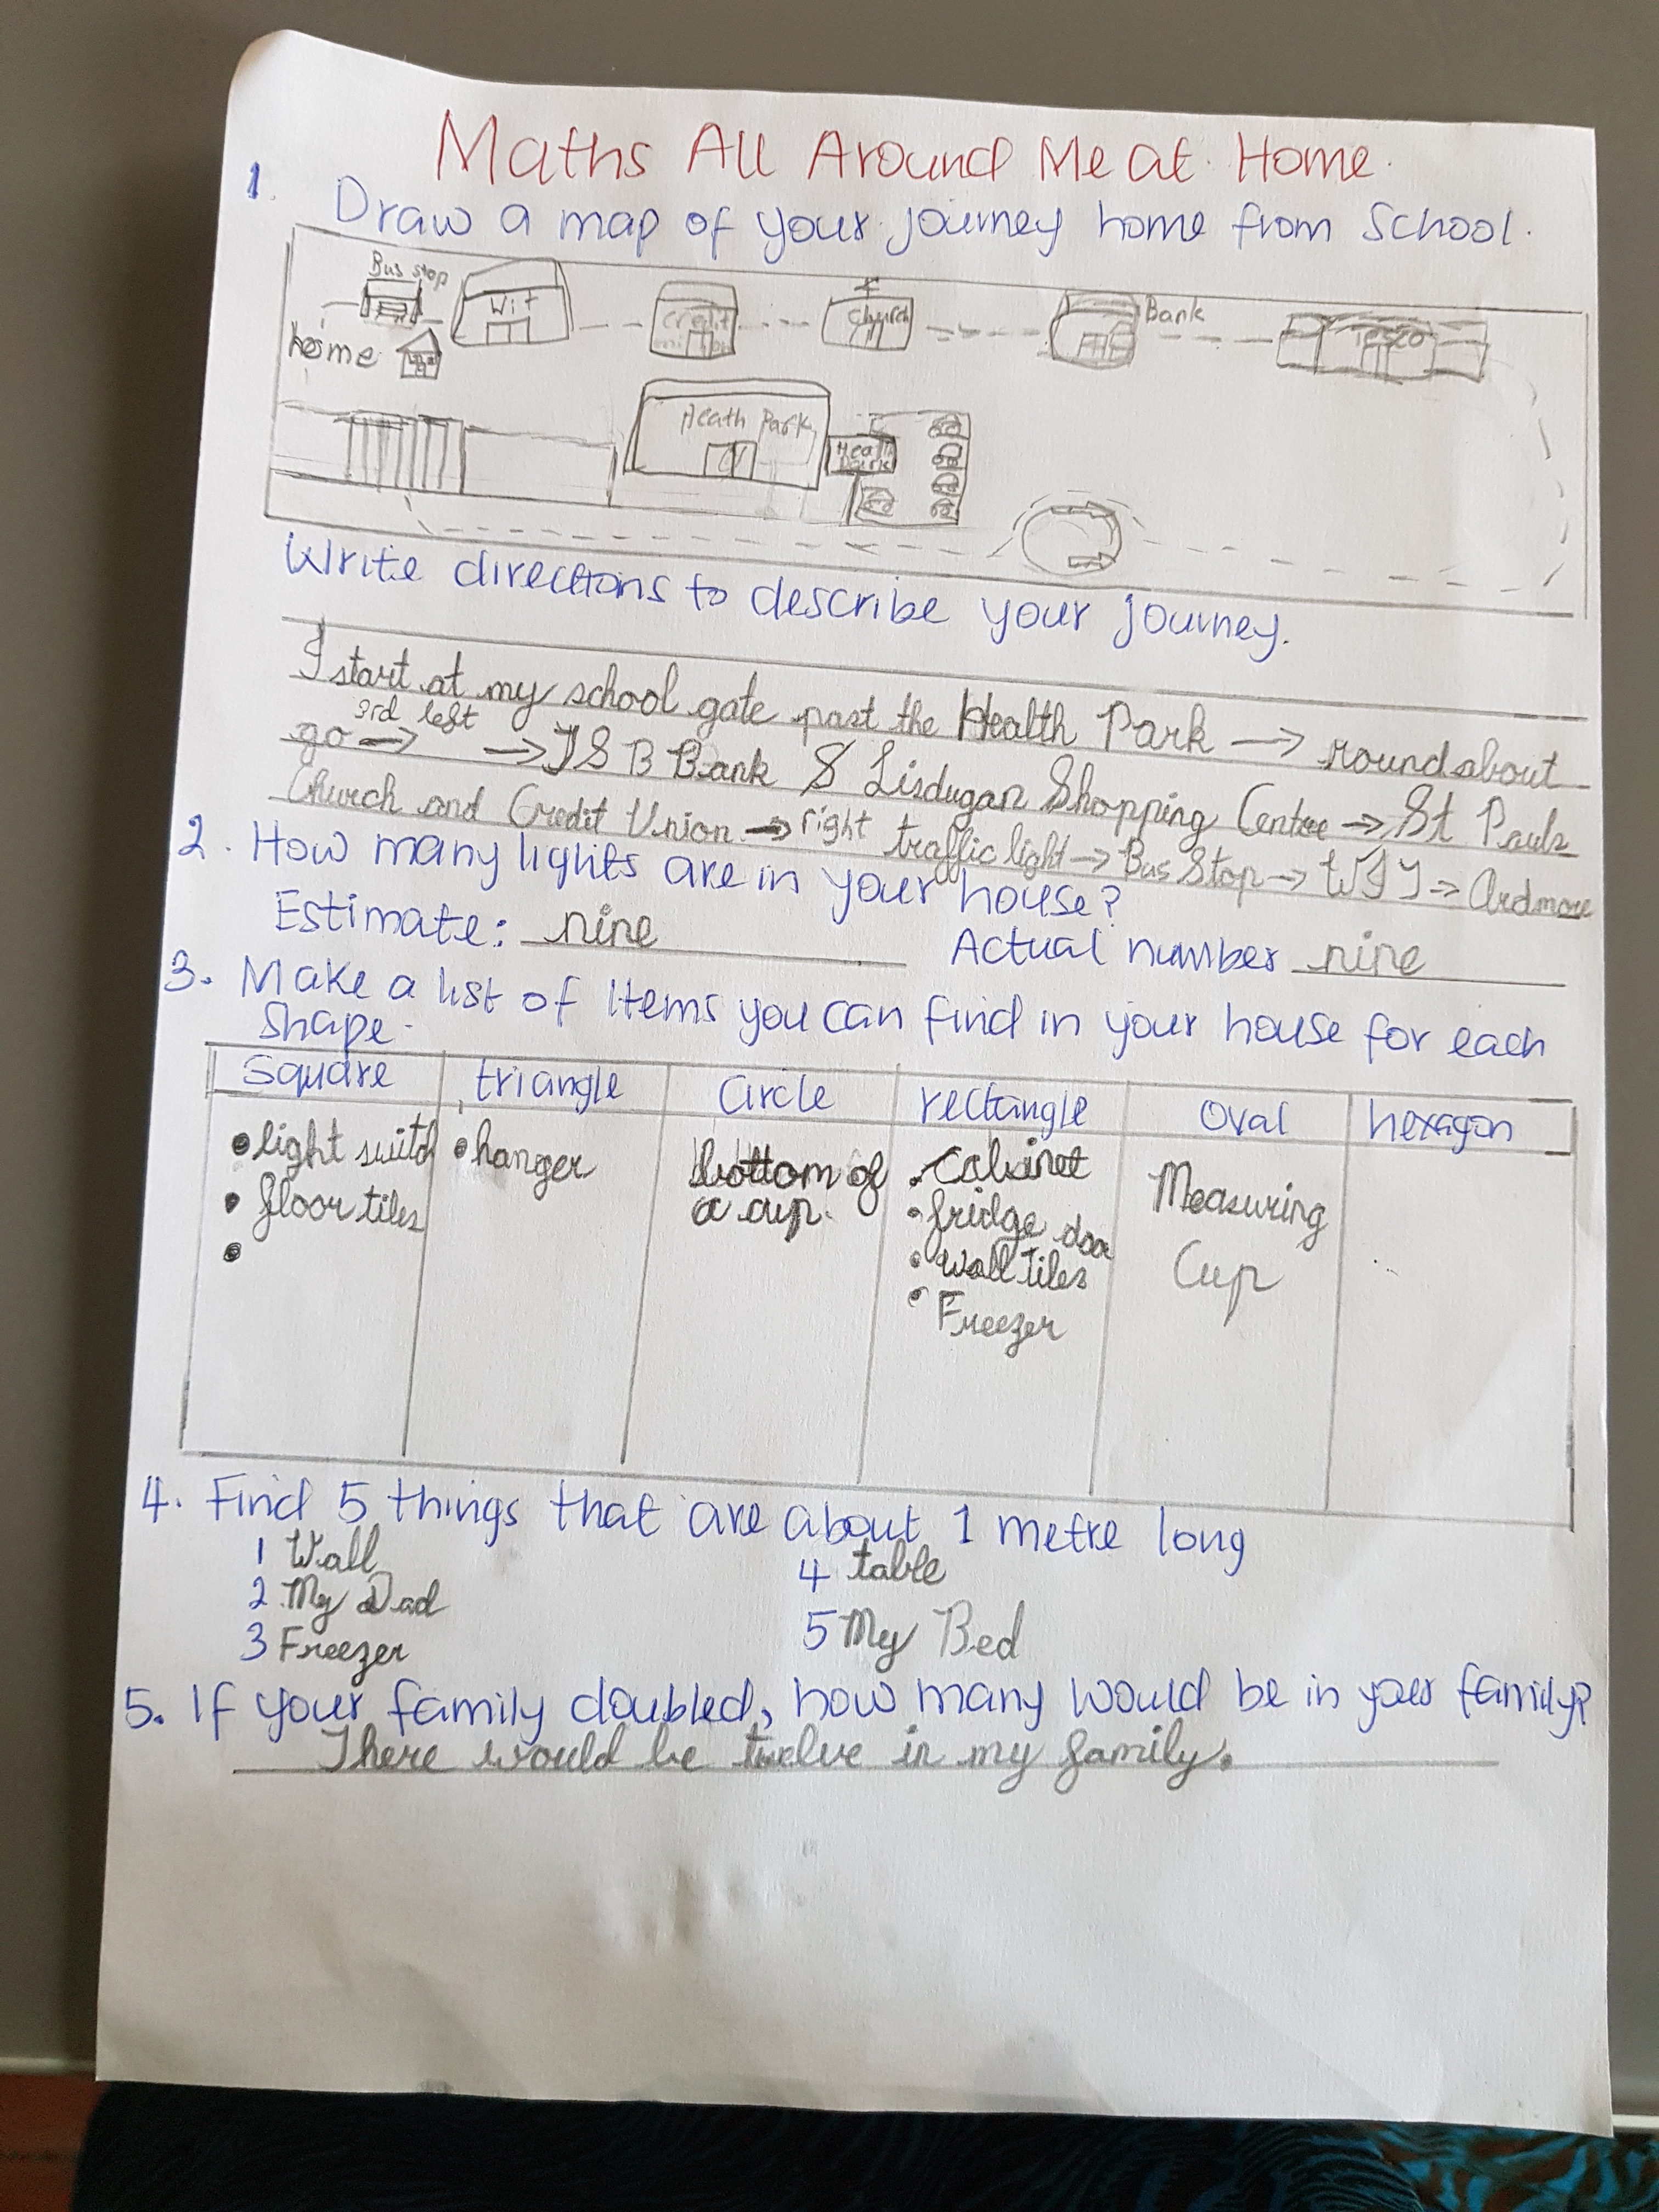 Maths All Around Me at Home.
1. Draw a map of your journey home from School.
Bus stop
Wit
Credit
Church
Bank
Tesco
home
Heath Park
Heath
Park
Write directions to describe your journey.
I start at my school gate past the Health Park → roundabout
go → 3rd left → TSB Bank & Lisdugan Shopping Centre → St Pauls
Church and Credit Union → right traffic light → Bus Stop → WIT → Ardmore
2. How many lights are in your house?
Estimate: nine Actual number nine
3. Make a list of items you can find in your house for each
Shape.
Square triangle Circle rectangle Oval hexagon
• light switch
• floor tiles
•
• hanger
bottom of
a cup.
• Cabinet
• fridge door
• Wall Tiles
• Freezer
Measuring
Cup
4. Find 5 things that are about 1 metre long
1 Wall
2 My Dad
3 Freezer
4 table
5 My Bed
5. If your family doubled, how many would be in your family?
There would be twelve in my family.